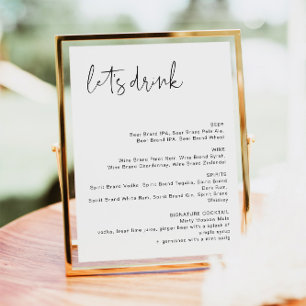 let's drink
BEER
Beer Brand IPA, Beer Brand Pale Ale,
Beer Brand IPA, Beer Brand Wheat
WINE
Wine Brand Pinot Noir, Wine Brand Syrah,
Wine Brand Chardonnay, Wine Brand Zinfandel
SPIRITS
Spirit Brand Vodka, Spirit Brand Tequila, Spirit Brand
Dark Rum,
Spirit Brand White Rum, Spirit Brand Gin, Spirit Brand
Whiskey
SIGNATURE COCKTAIL
Minty Moscow Mule
vodka, fresh lime juice, ginger beer with a splash of
simple syrup
+ garnished with a mint sprig